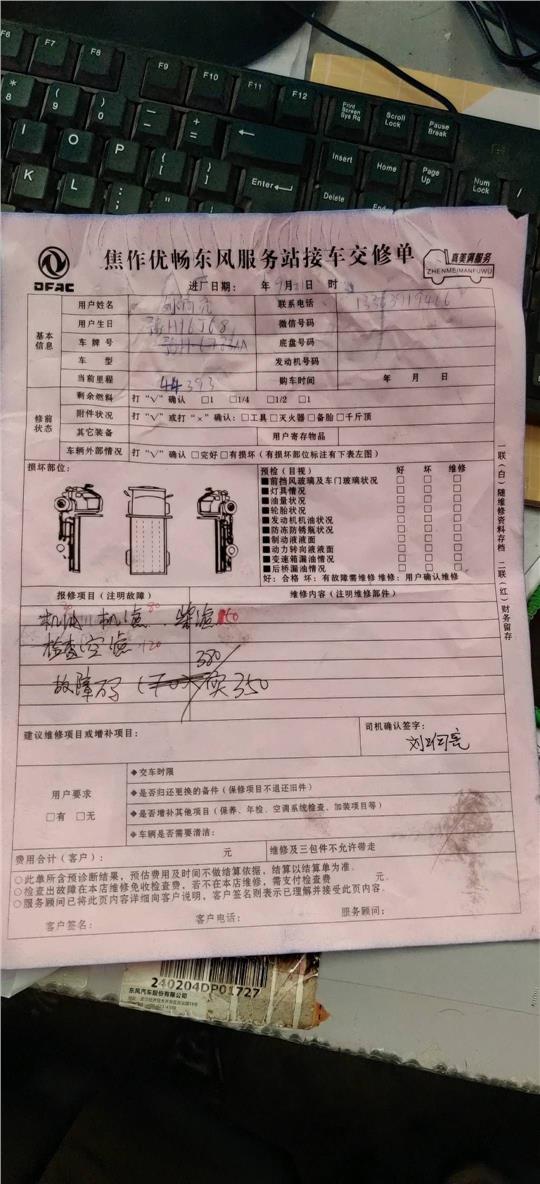 F6 F7 F8 F9 F10 F11 F12 Print Screen Sys Rq Scroll Lock Pause Break
* 8 ( 9 ) 0 — - + = ←
I O P { [ } ] Insert Home Page Up Num Lock /
K L : ; Enter Delete End
DFAC 焦作优畅东风服务站接车交修单 真美满服务
ZHENMEIMANFUWU
进厂日期： 年 月 日 时
基本信息
用户姓名 联系电话
用户生日 微信号码
车牌号 底盘号码
车 型 发动机号码
当前里程 44393 购车时间 年 月 日
修前状态
剩余燃料 打“√”确认 □1 □1/4 □1/2 □1
附件状况 打“√”或打“×”确认：□工具□灭火器□备胎□千斤顶
其它装备 用户寄存物品
车辆外部情况 打“√”确认 □完好□有损坏（有损坏部位标注有下表左图）
损坏部位：
预检（目视） 好 坏 维修
■前挡风玻璃及车门玻璃状况 □ □ □
■灯具情况 □ □ □
■油量状况 □ □ □
■轮胎状况 □ □ □
■发动机机油状况 □ □ □
■防冻防锈瓶状况 □ □ □
■制动液液面 □ □ □
■动力转向液液面 □ □ □
■变速箱漏油情况 □ □ □
■后桥漏油情况 □ □ □
好：合格 坏：有故障需维修 维修：用户确认维修
报修项目（注明故障） 维修内容（注明维修部件）
机油 机滤 80 柴滤
检查空滤 120
380
故障码 实350
建议维修项目或增补项目： 司机确认签字：
用户要求
□有 □无
◆交车时限
◆是否归还更换的备件（保修项目不退还旧件）
◆是否增补其他项目（保养、年检、空调系统检查、加装项目等）
◆车辆是否需要清洁：
费用合计（客户）： 元 维修及三包件不允许带走
○此单所含预诊断结果，预估费用及时间不做结算依据，结算以结算单为准。
○检查出故障在本店维修免收检查费，若不在本店维修，需支付检查费 元。
○服务顾问已将此页内容详细向客户说明，客户签名则表示已理解并接受此页内容。
客户签名： 客户电话： 服务顾问：
一联（白）随维修资料存档 二联（红）财务留存
240204DP01727
东风汽车股份有限公司